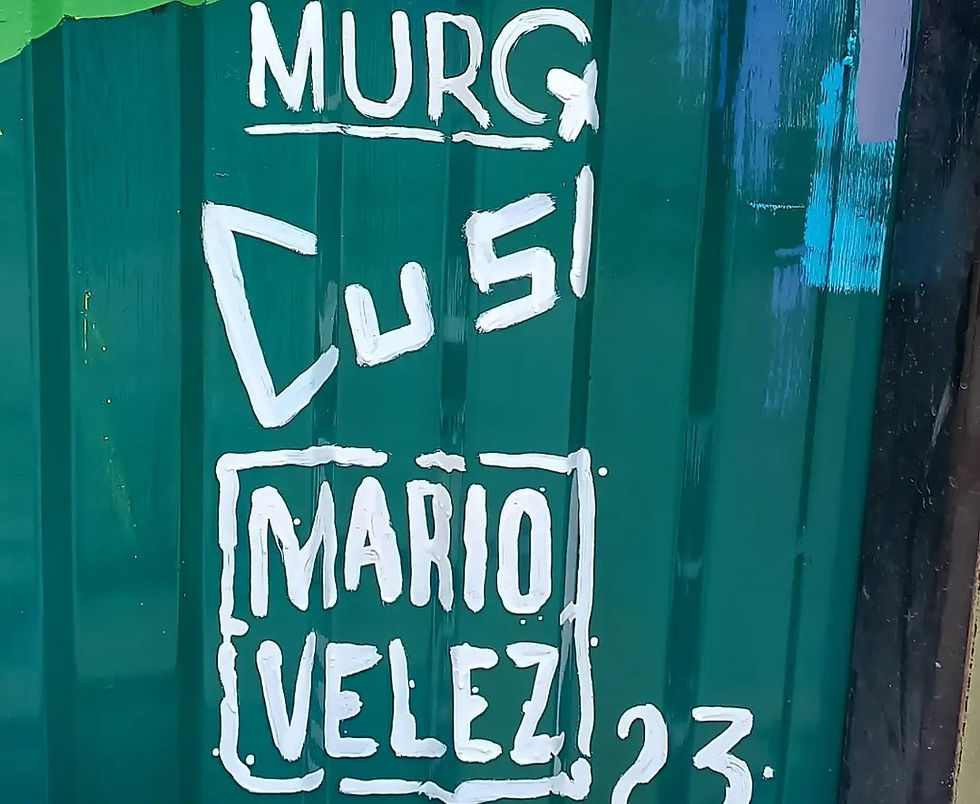 MURG
CuSI
MARIO
VELEZ 23